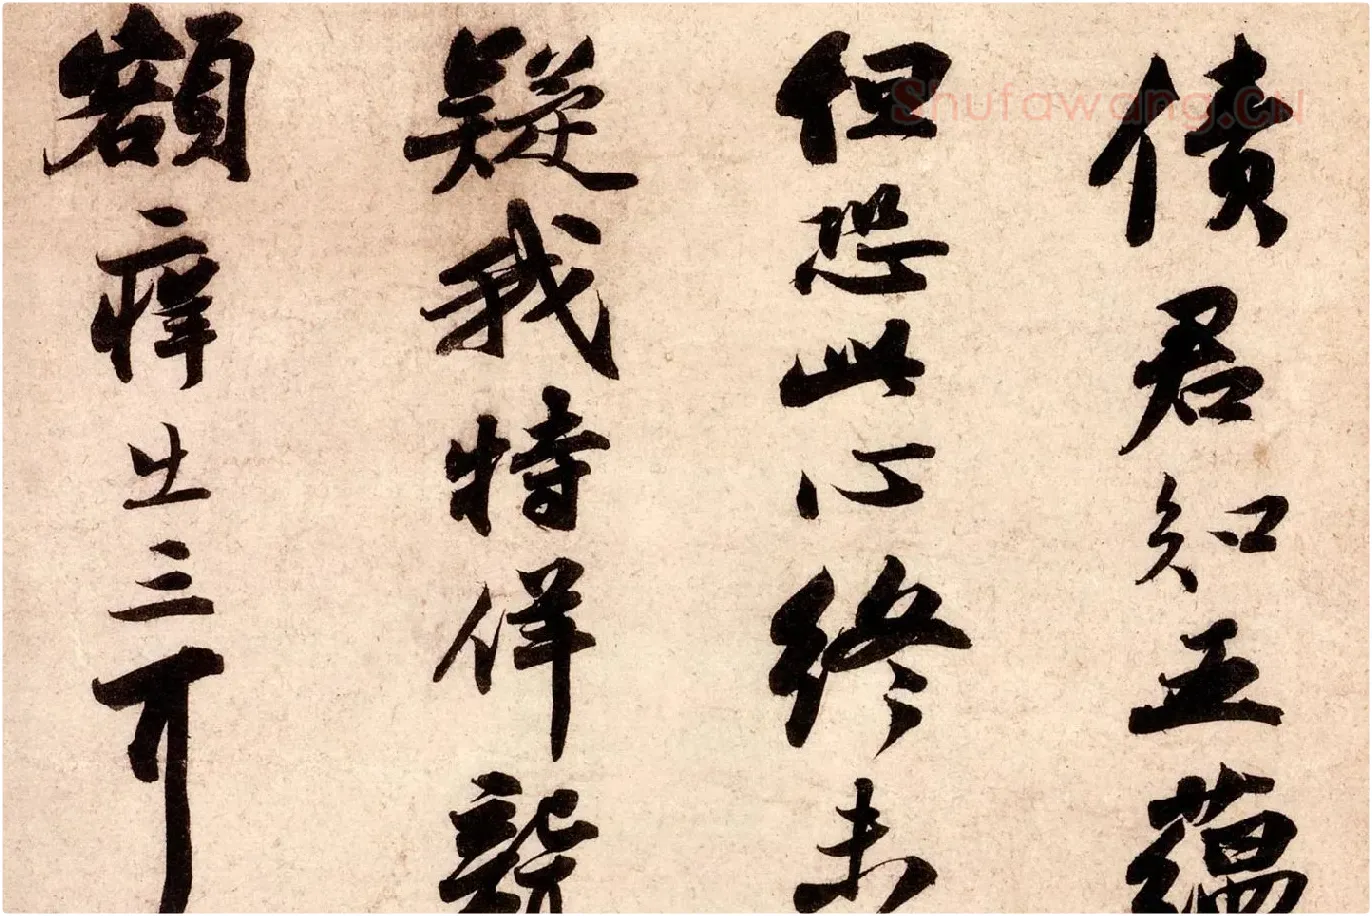 債君知五蘊
但恐此心終未
疑我特佯聾
額痒出三耳
Shufawang.CN